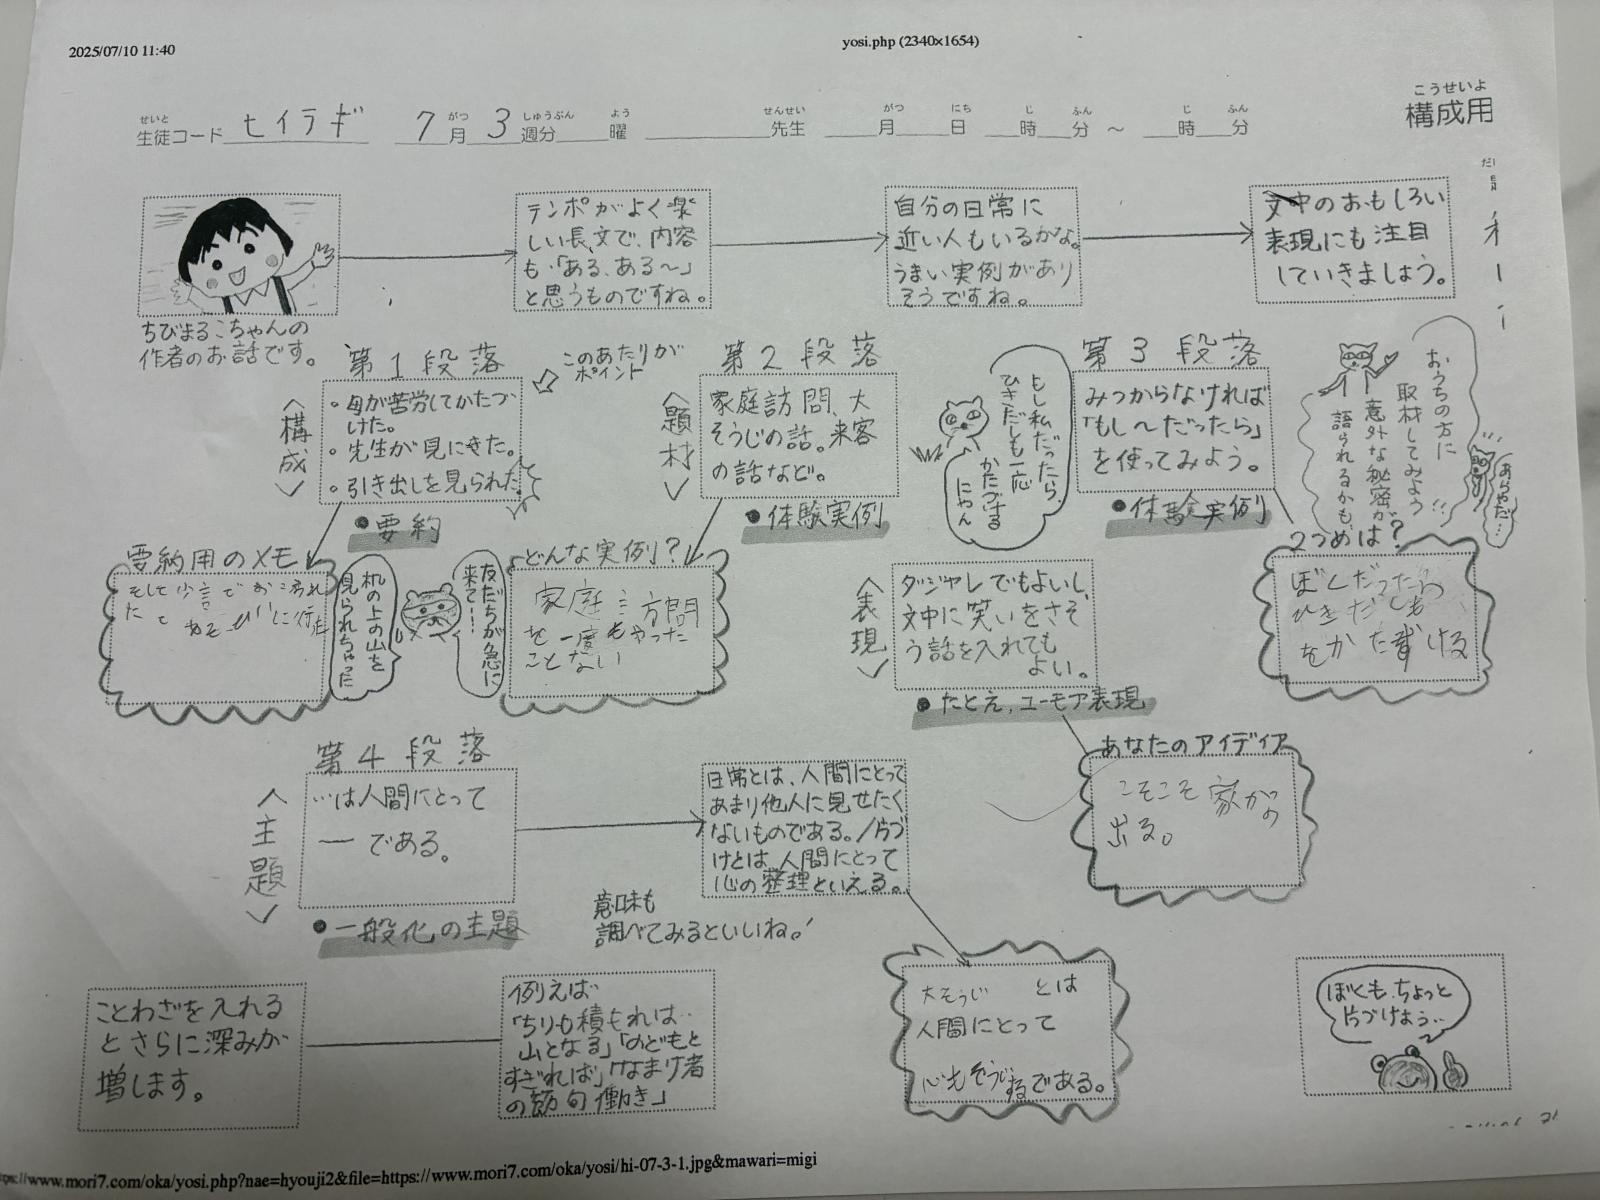 2025/07/10 11:40
yosi.php (2340×1654)
こうせいよ
構成用
せいと がつ しゅうぶん よう せんせい がつ にち じ ふん じ ふん
生徒コード セイラギ 7月 3週分 曜 先生 月 日 時 分 ～ 時 分
テンポがよく楽
しい長文で、内容
も「ある、ある〜」
と思うものですね。
自分の日常に
近い人もいるかな。
うまい実例があり
そうですね。
文中のおもしろい
表現にも注目
していきましょう。
ちびまるこちゃんの
作者のお話です。
第1段落
このあたりが
ポイント
〈構成〉
・母が苦労してかたづ
けた。
・先生が見にきた。
・引き出しを見られた。
●要約
第2段落
〈題材〉
家庭訪問、大
そうじの話。来客
の話など。
●体験実例
もし私だったら、
ひきだしも一応
かたづける
にゃん
第3段落
みつからなければ
「もし〜だったら」
を使ってみよう。
●体験実例
おうちの方に
取材してみよう
意外な秘密が
語られるかも!!
あらやだ…
要約用のメモ
机の上の山を
見られちゃった
友だちが急に
来て…!
どんな実例?
家庭訪問
を一度もやった
ことない
〈表現〉
ダジャレでもよいし、
文中に笑いをさそ
う話を入れても
よい。
●たとえ,ユーモア表現
2つめは?
ぼくだったら
ひきだしも
をかた付ける
あなたのアイディア
こそこそ家から
出る。
第4段落
〈主題〉
…は人間にとって
― である。
●一般化の主題
日常とは、人間にとって
あまり他人に見せたく
ないものである。/片づ
けとは、人間にとって
心の整理といえる。
意味も
調べてみるといいね。!
大そうじ とは
人間にとって
心もそうじするである。
ことわざを入れる
とさらに深みが
増します。
例えば
「ちりも積もれば…
山となる」「のどもと
すぎれば」「なまけ者
の節句働き」
ぼくも、ちょっと
片づけよう…
https://www.mori7.com/oka/yosi.php?nae=hyouji2&file=https://www.mori7.com/oka/yosi/hi-07-3-1.jpg&mawari=migi